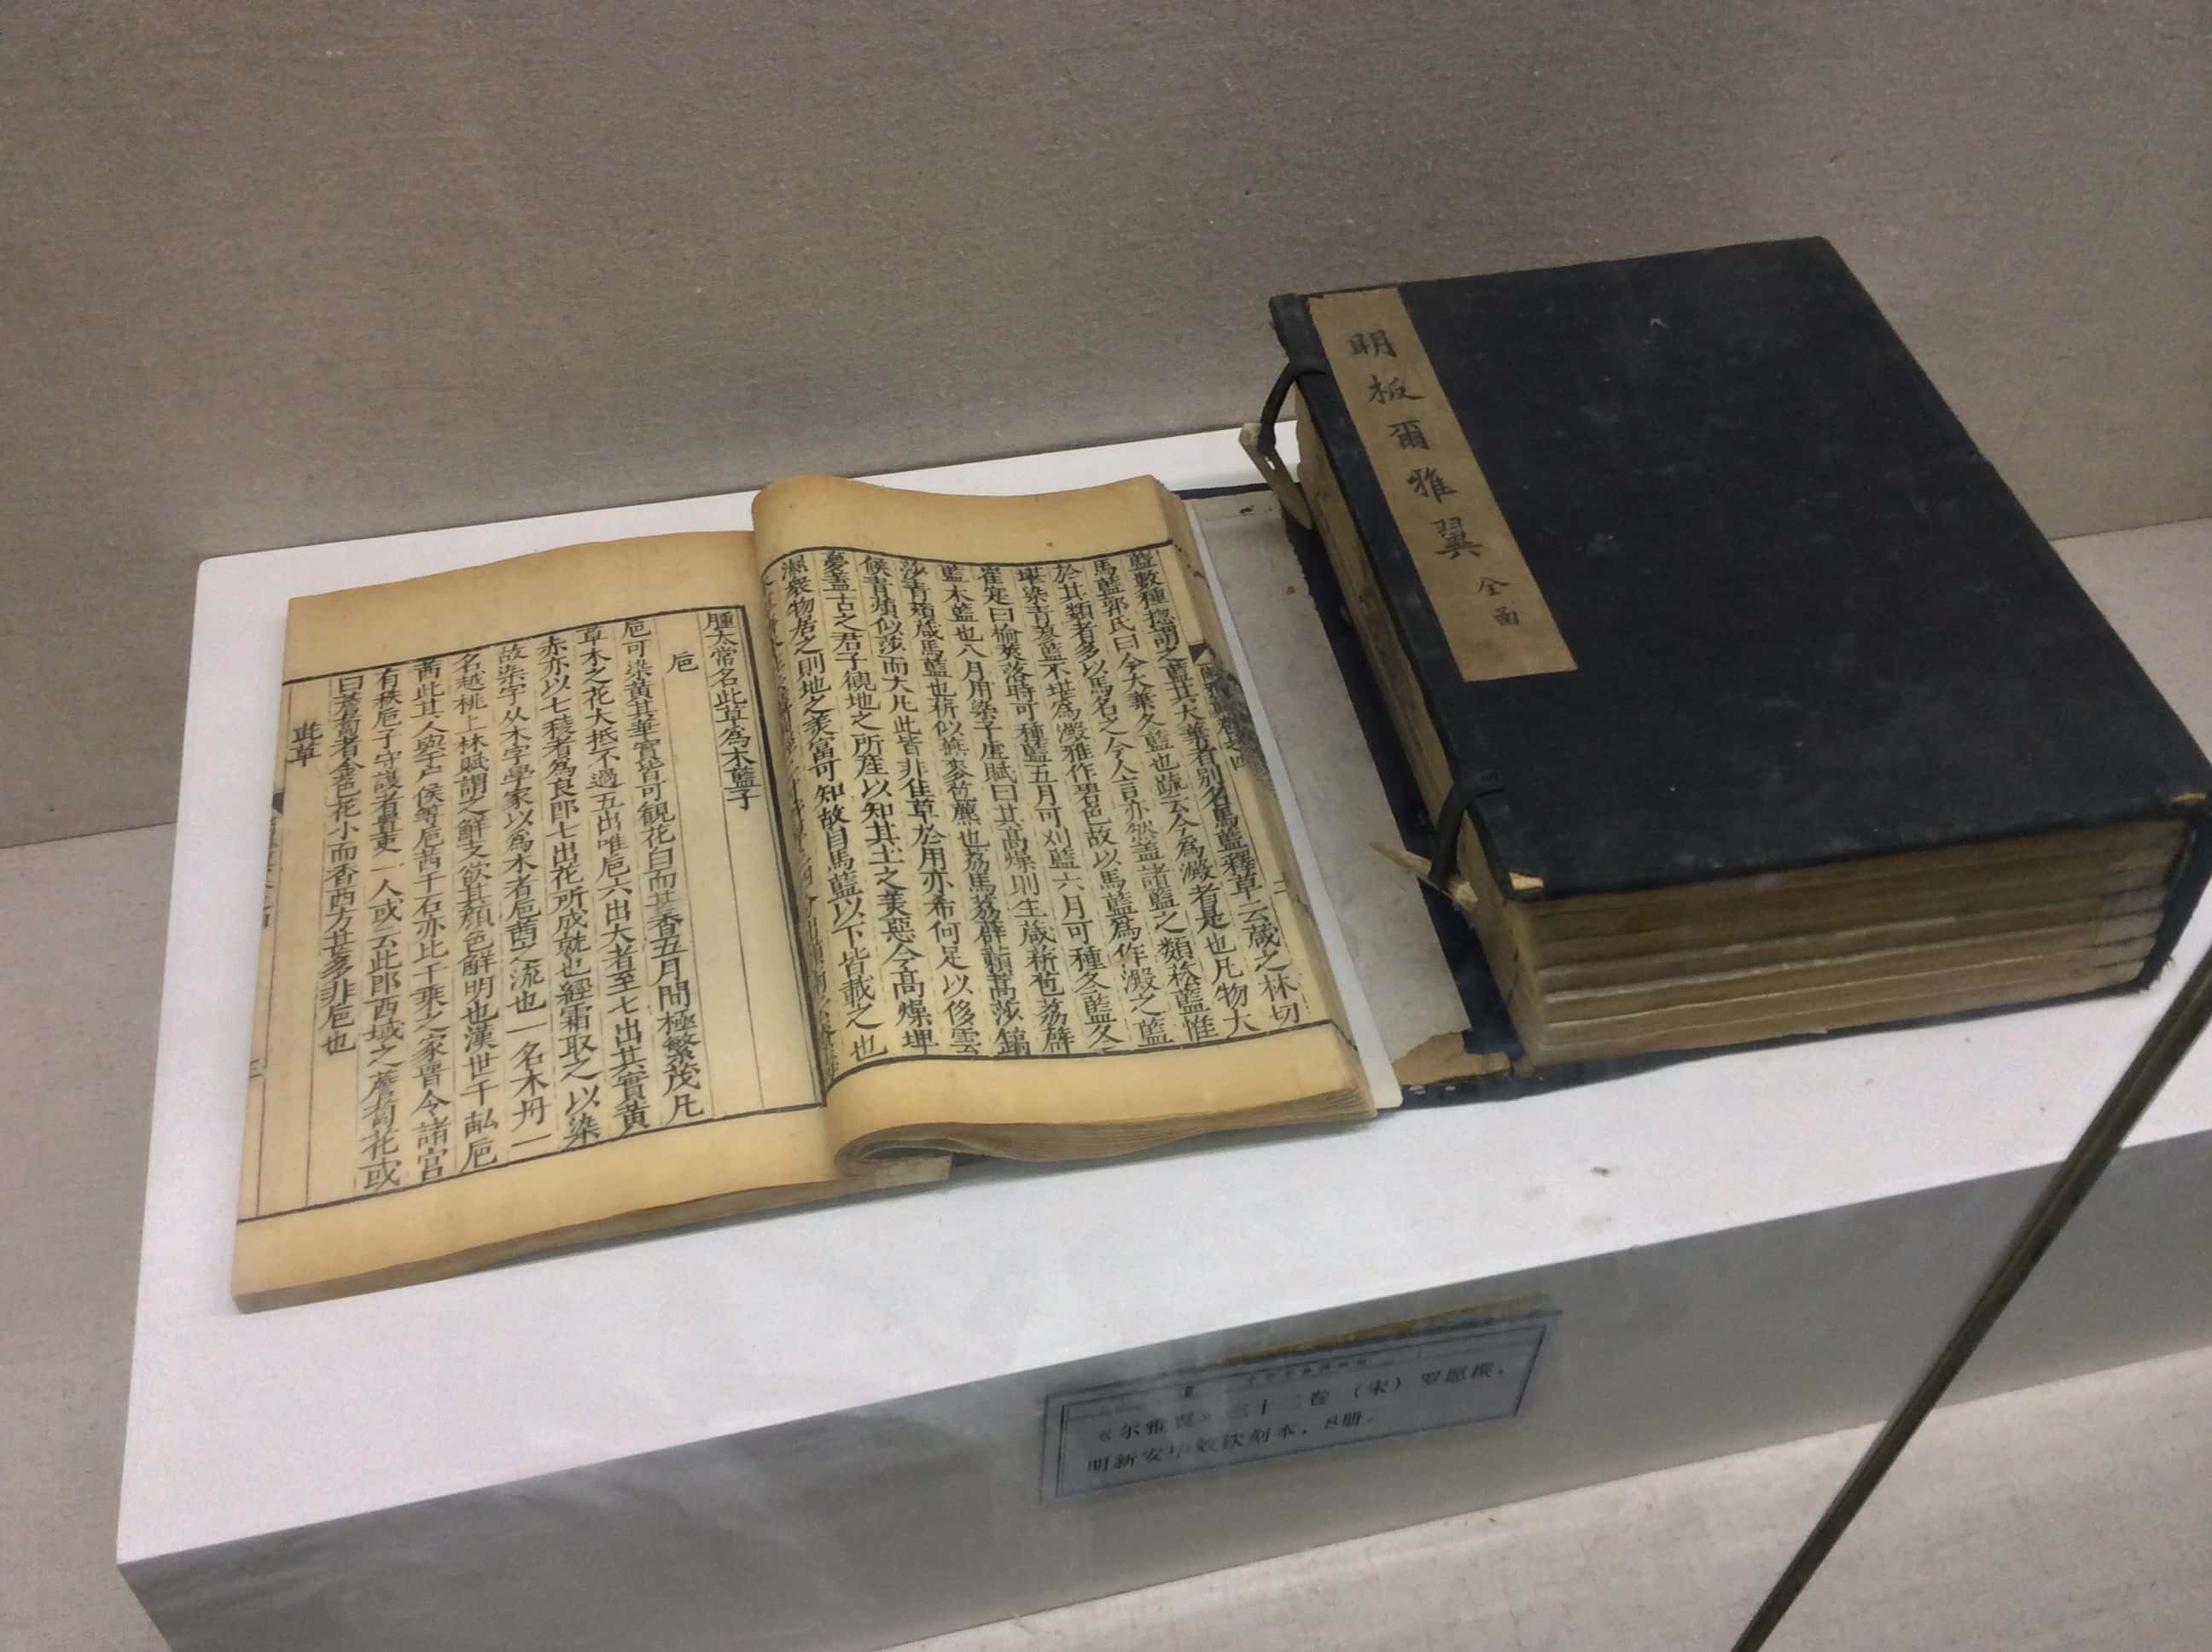 明板爾雅翼 全函
藍數種揔謂之藍其大葉者别名馬藍釋草云葴之林切
馬藍郭氏曰今大葉冬藍也疏云今為澱者是也凡物大
於其類者多以馬名之今人言亦然蓋諸藍之類菘藍惟
堪染青蓼藍不堪為澱雅作碧色故以馬藍為作澱之藍
崔寔曰榆莢落時可種藍五月可刈藍六月可種冬藍冬
藍木藍也八月用染子虛賦曰其髙燥則生葴菥苞荔薜
莎青薠葴馬藍也菥似燕麥苞藨也荔馬荔薜藾蒿莎鎬
侯青薠似莎而大凡此皆非佳草於用亦希何足以侈雲
夢蓋古之君子觀地之所產以知其土之美惡今髙燥埤
濕衆物居之則地之美富可知故自馬藍以下皆載之也
腫太常名此草為木藍子
巵
巵可染黃其華實皆可觀花白而甚香五月間極繁茂凡
草木之花大抵不過五出唯巵六出大者至七出其實黃
赤亦以七稜者為良即七出花所成就也經霜取之以染
故染字从木字學家以為木者巵茜之流也一名木丹一
名越桃上林賦謂之鮮支欲其顏色鮮明也漢世千畝巵
茜此其人與千户侯等巵茜千石亦比千乘之家晋令諸宫
有秩巵子守護者置吏一人或云此即西域之薝蔔花或
曰薝蔔者金色花小而香西方甚多非巵也
此草
《尔雅翼》三十二卷 （宋）罗愿撰，
明新安毕效钦刻本，8册。